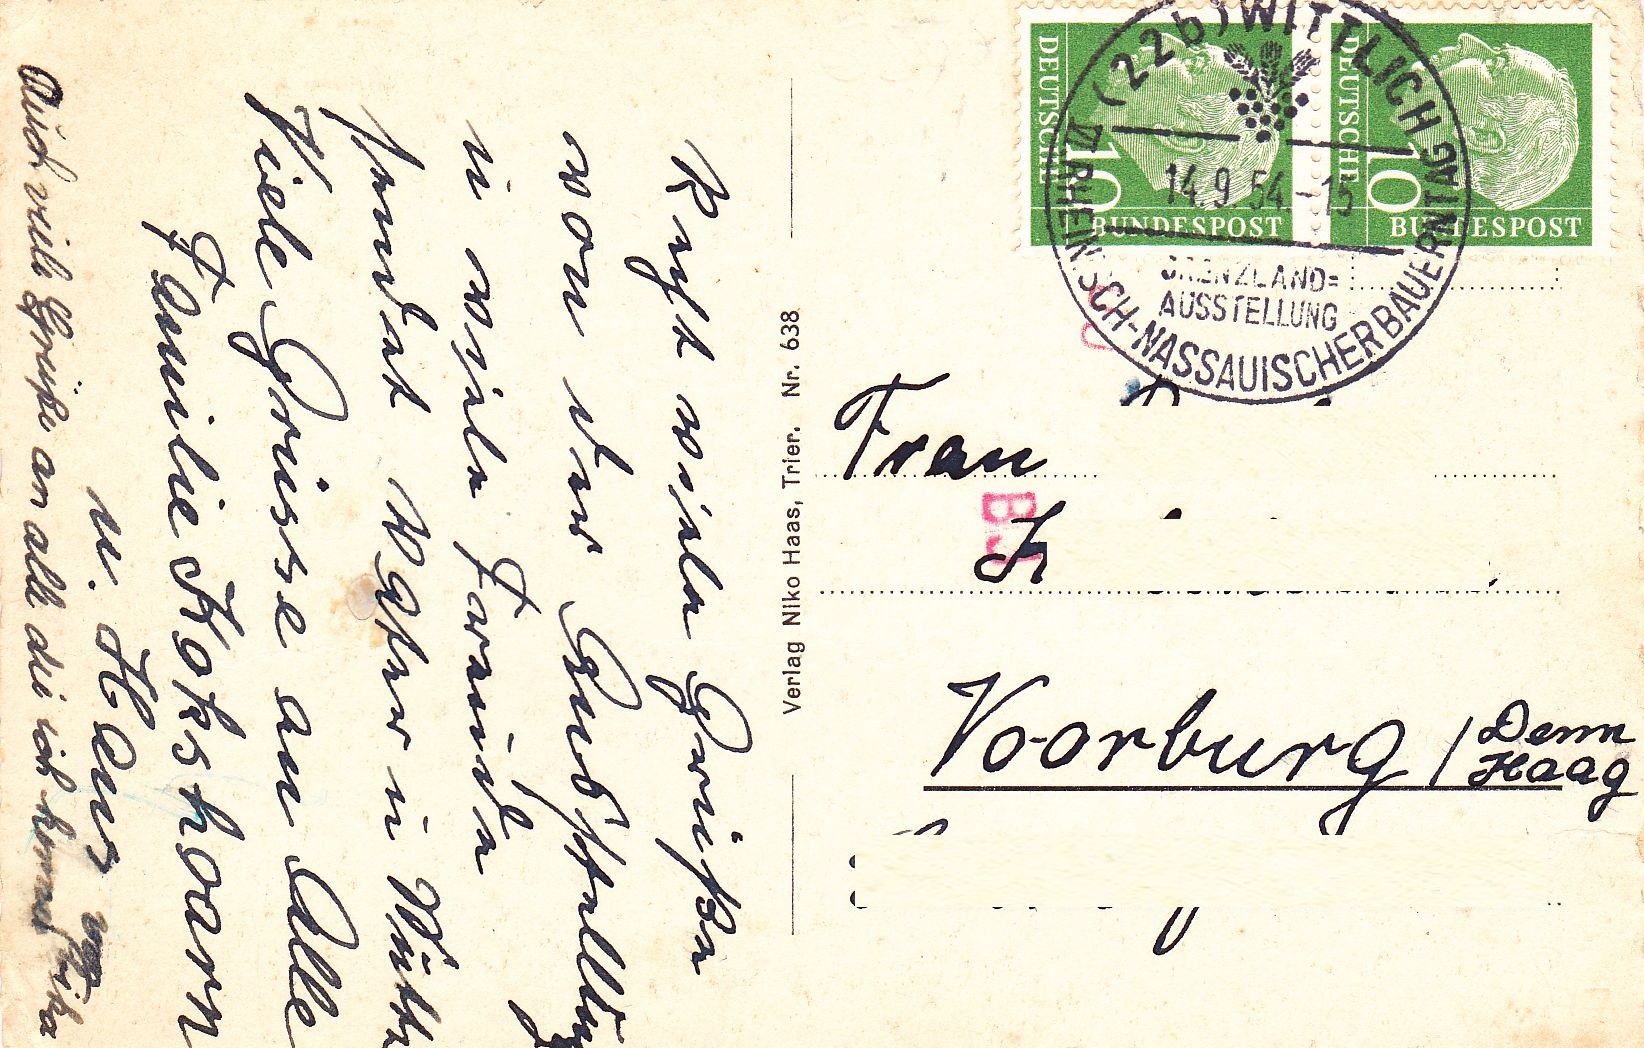 Recht viele Grüßen
von der Ausstellung
u viele Freunde
sendet u
Viele Grüsse an Alle
Familie Kokshoorn
u. Hans
Auch viele Grüße an alle die ich kenne
Verlag Niko Haas, Trier. Nr. 638
DEUTSCHE
10
BUNDESPOST
DEUTSCHE
10
BUNDESPOST
(22b) WITTLICH
14.9.54.-15
GRENZLAND=
AUSSTELLUNG
RHEINISCH-NASSAUISCHER BAUERNTAG
Frau
Voorburg / Denn
Haag